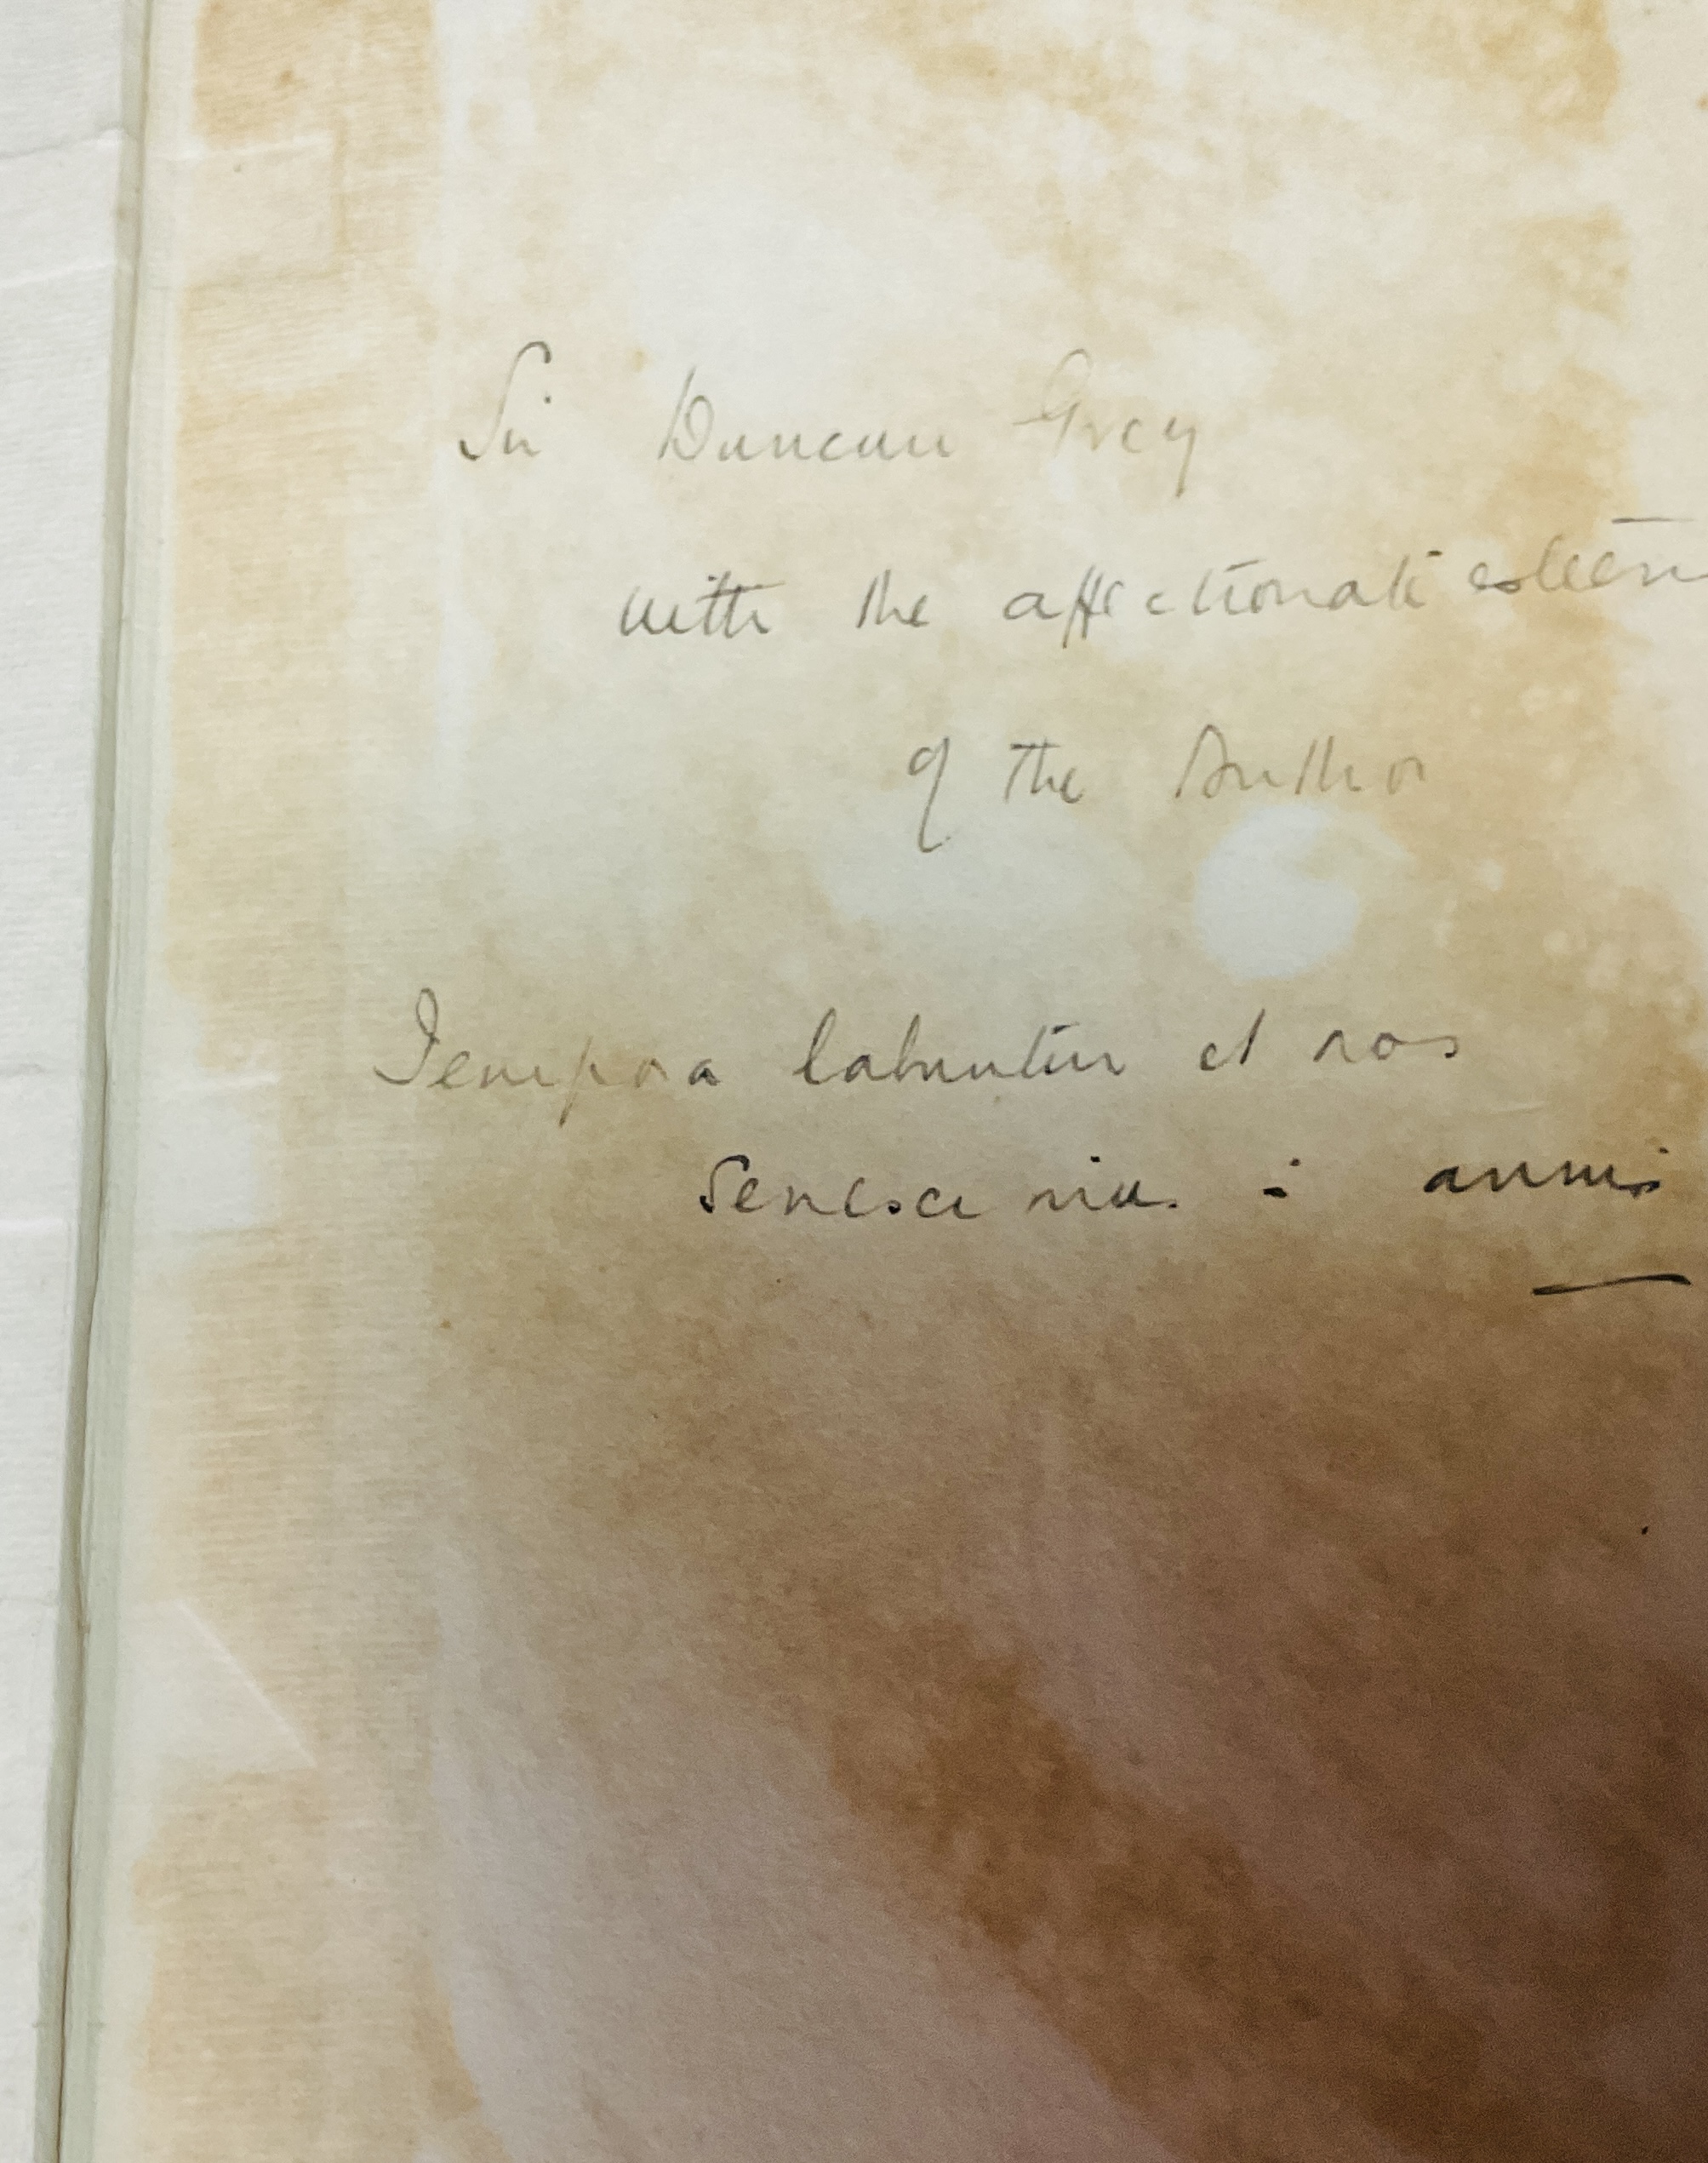 Sir Duncan Grey
with the affectionate esteem
of the Author
Tempora labuntur et nos
senescimus : annis